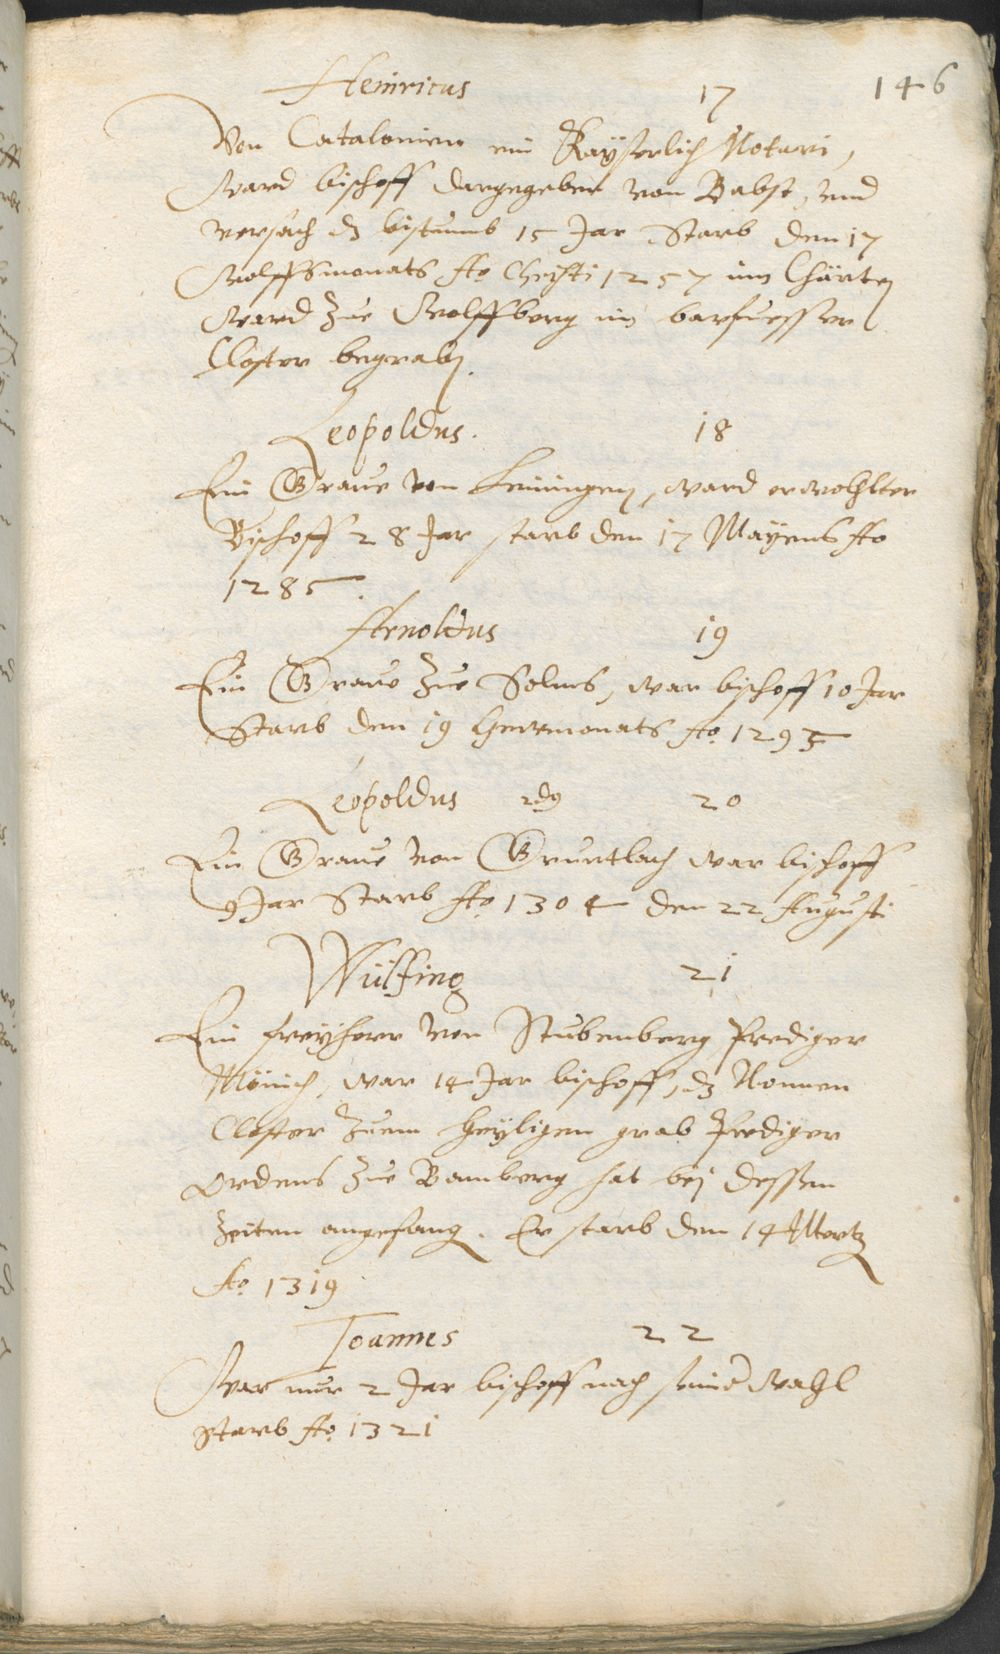 146
Heinricus 17
Von Catalonien ein Kaÿserlich Notari,
Ward bischoff dargegeben von Babst, vnd
versach dz bistumb 15 Jar Starb den 17
Wolffsmonats Ao Christi 1257 inn Chärten
Ward zue Wolffberg im barfuesser
Closter begraben.
Leopoldus. 18
Ein Graue von Leiningen, ward erwohlter
Bischoff 28 Jar starb den 17 Mayens Ao
1285.
Arnoldus 19
Ein Graue zue Solms, war bischoff 10 Jar
Starb den 19 Hewmonats Ao. 1295
Leopoldus 2dg 20
Ein Graue von Gruntlach war bischoff
9 Jar Starb Ao 1304 den 22 Augusti
Wülfing 21
Ein freyherr von Stubenberg Prediger
Mönich, war 14 Jar bischoff, dz Nonnen
Closter zuem heyligen grab Prediger
Ordens zue Bamberg hat bei dessen
Zeiten angefang. Er starb den 14 Mertz
Ao 1319.
Joannes 22
War nur 2 Jar bischoff nach seiner Wahl
starb Ao 1321